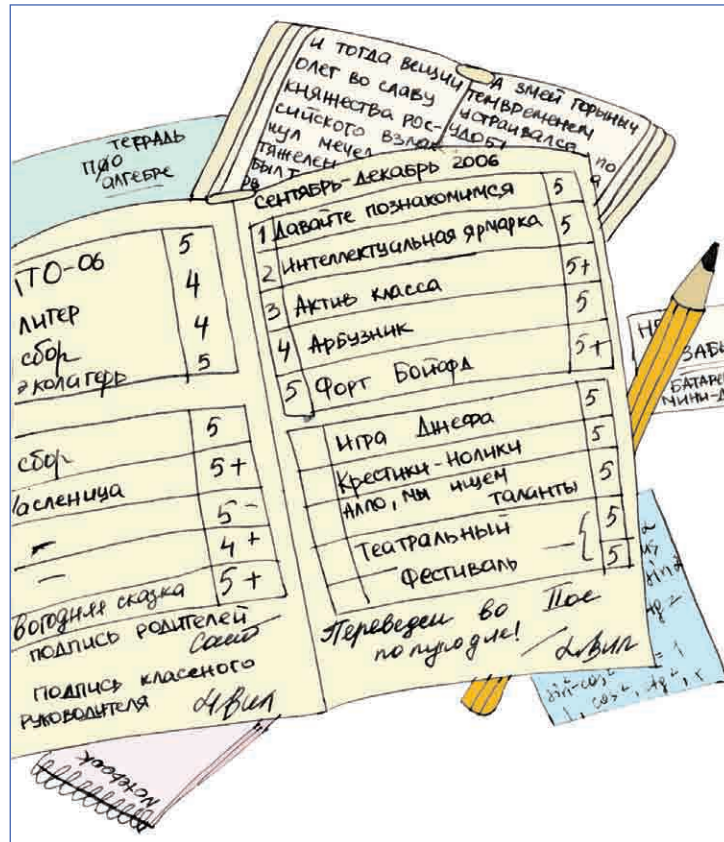 И ТОГДА ВЕЩИЙ
ОЛЕГ ВО СЛАВУ
КНЯЖЕСТВА РОС-
СИЙСКОГО
МЕЧЕ
ТЯЖЕЛЕН
БЫЛ
А ЗМЕЙ ГОРЫНЫЧ
ТЕМВРЕМЕНЕМ
УСТРАИВАЛСЯ ПО
УДОБ
ТЕТРАДЬ
ПО
АЛГЕБРЕ
ТО-06 5
ЛИТЕР 4
СБОР 4
ЭКОЛАГЕРЬ 5
СБОР 5
АСЛЕНИЦА 5+
– 5-
– 4+
ВОГОДНЯЯ СКАЗКА 5+
ПОДПИСЬ РОДИТЕЛЕЙ
ПОДПИСЬ КЛАСЕНОГО
РУКОВОДИТЕЛЯ
СЕНТЯБРЬ-ДЕКАБРЬ 2006
1 ДАВАЙТЕ ПОЗНАКОМИМСЯ 5
2 ИНТЕЛЛЕКТУАЛЬНАЯ ЯРМАРКА 5
3 АКТИВ КЛАССА 5+
4 АРБУЗНИК 5
5 ФОРТ БОЙАРД 5+
ИГРА ДЖЕФФА 5
КРЕСТИКИ-НОЛИКИ 5
АЛЛО, МЫ ИЩЕМ
ТАЛАНТЫ 5
ТЕАТРАЛЬНЫЙ 5
ФЕСТИВАЛЬ – 5
Переведен во II ое
полугодие!
ЗАБЫ
БАТАРЕ
МИНИ-Д
sin²-cos² = 1
Notebook